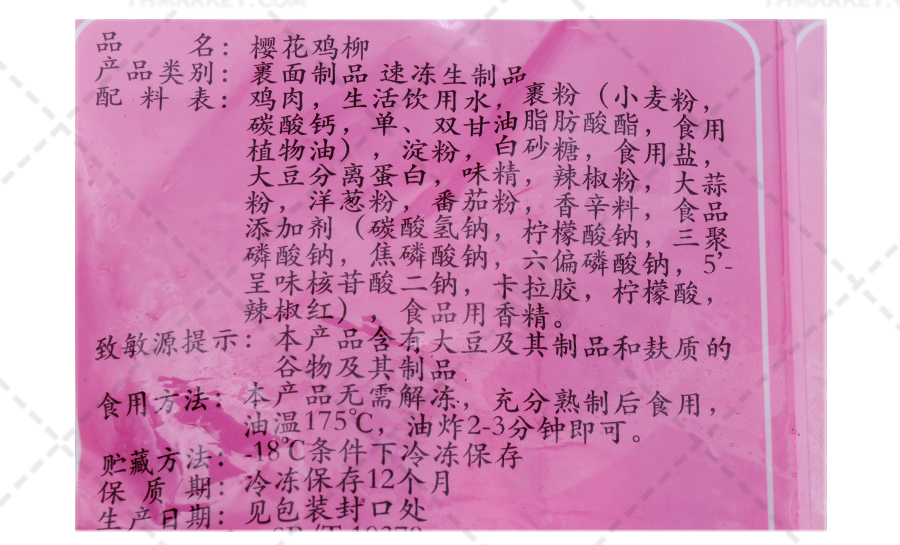 THMARKET.COM
THMARKET.COM
品名：樱花鸡柳
产品类别：裹面制品 速冻生制品
配料表：鸡肉，生活饮用水，裹粉（小麦粉，
碳酸钙，单、双甘油脂肪酸酯，食用
植物油），淀粉，白砂糖，食用盐，
大豆分离蛋白，味精，辣椒粉，大蒜
粉，洋葱粉，番茄粉，香辛料，食品
添加剂（碳酸氢钠，柠檬酸钠，三聚
磷酸钠，焦磷酸钠，六偏磷酸钠，5’-
呈味核苷酸二钠，卡拉胶，柠檬酸，
辣椒红），食品用香精。
致敏源提示：本产品含有大豆及其制品和麸质的
谷物及其制品
食用方法：本产品无需解冻，充分熟制后食用，
油温175℃，油炸2-3分钟即可。
贮藏方法：-18℃条件下冷冻保存
保质期：冷冻保存12个月
生产日期：见包装封口处